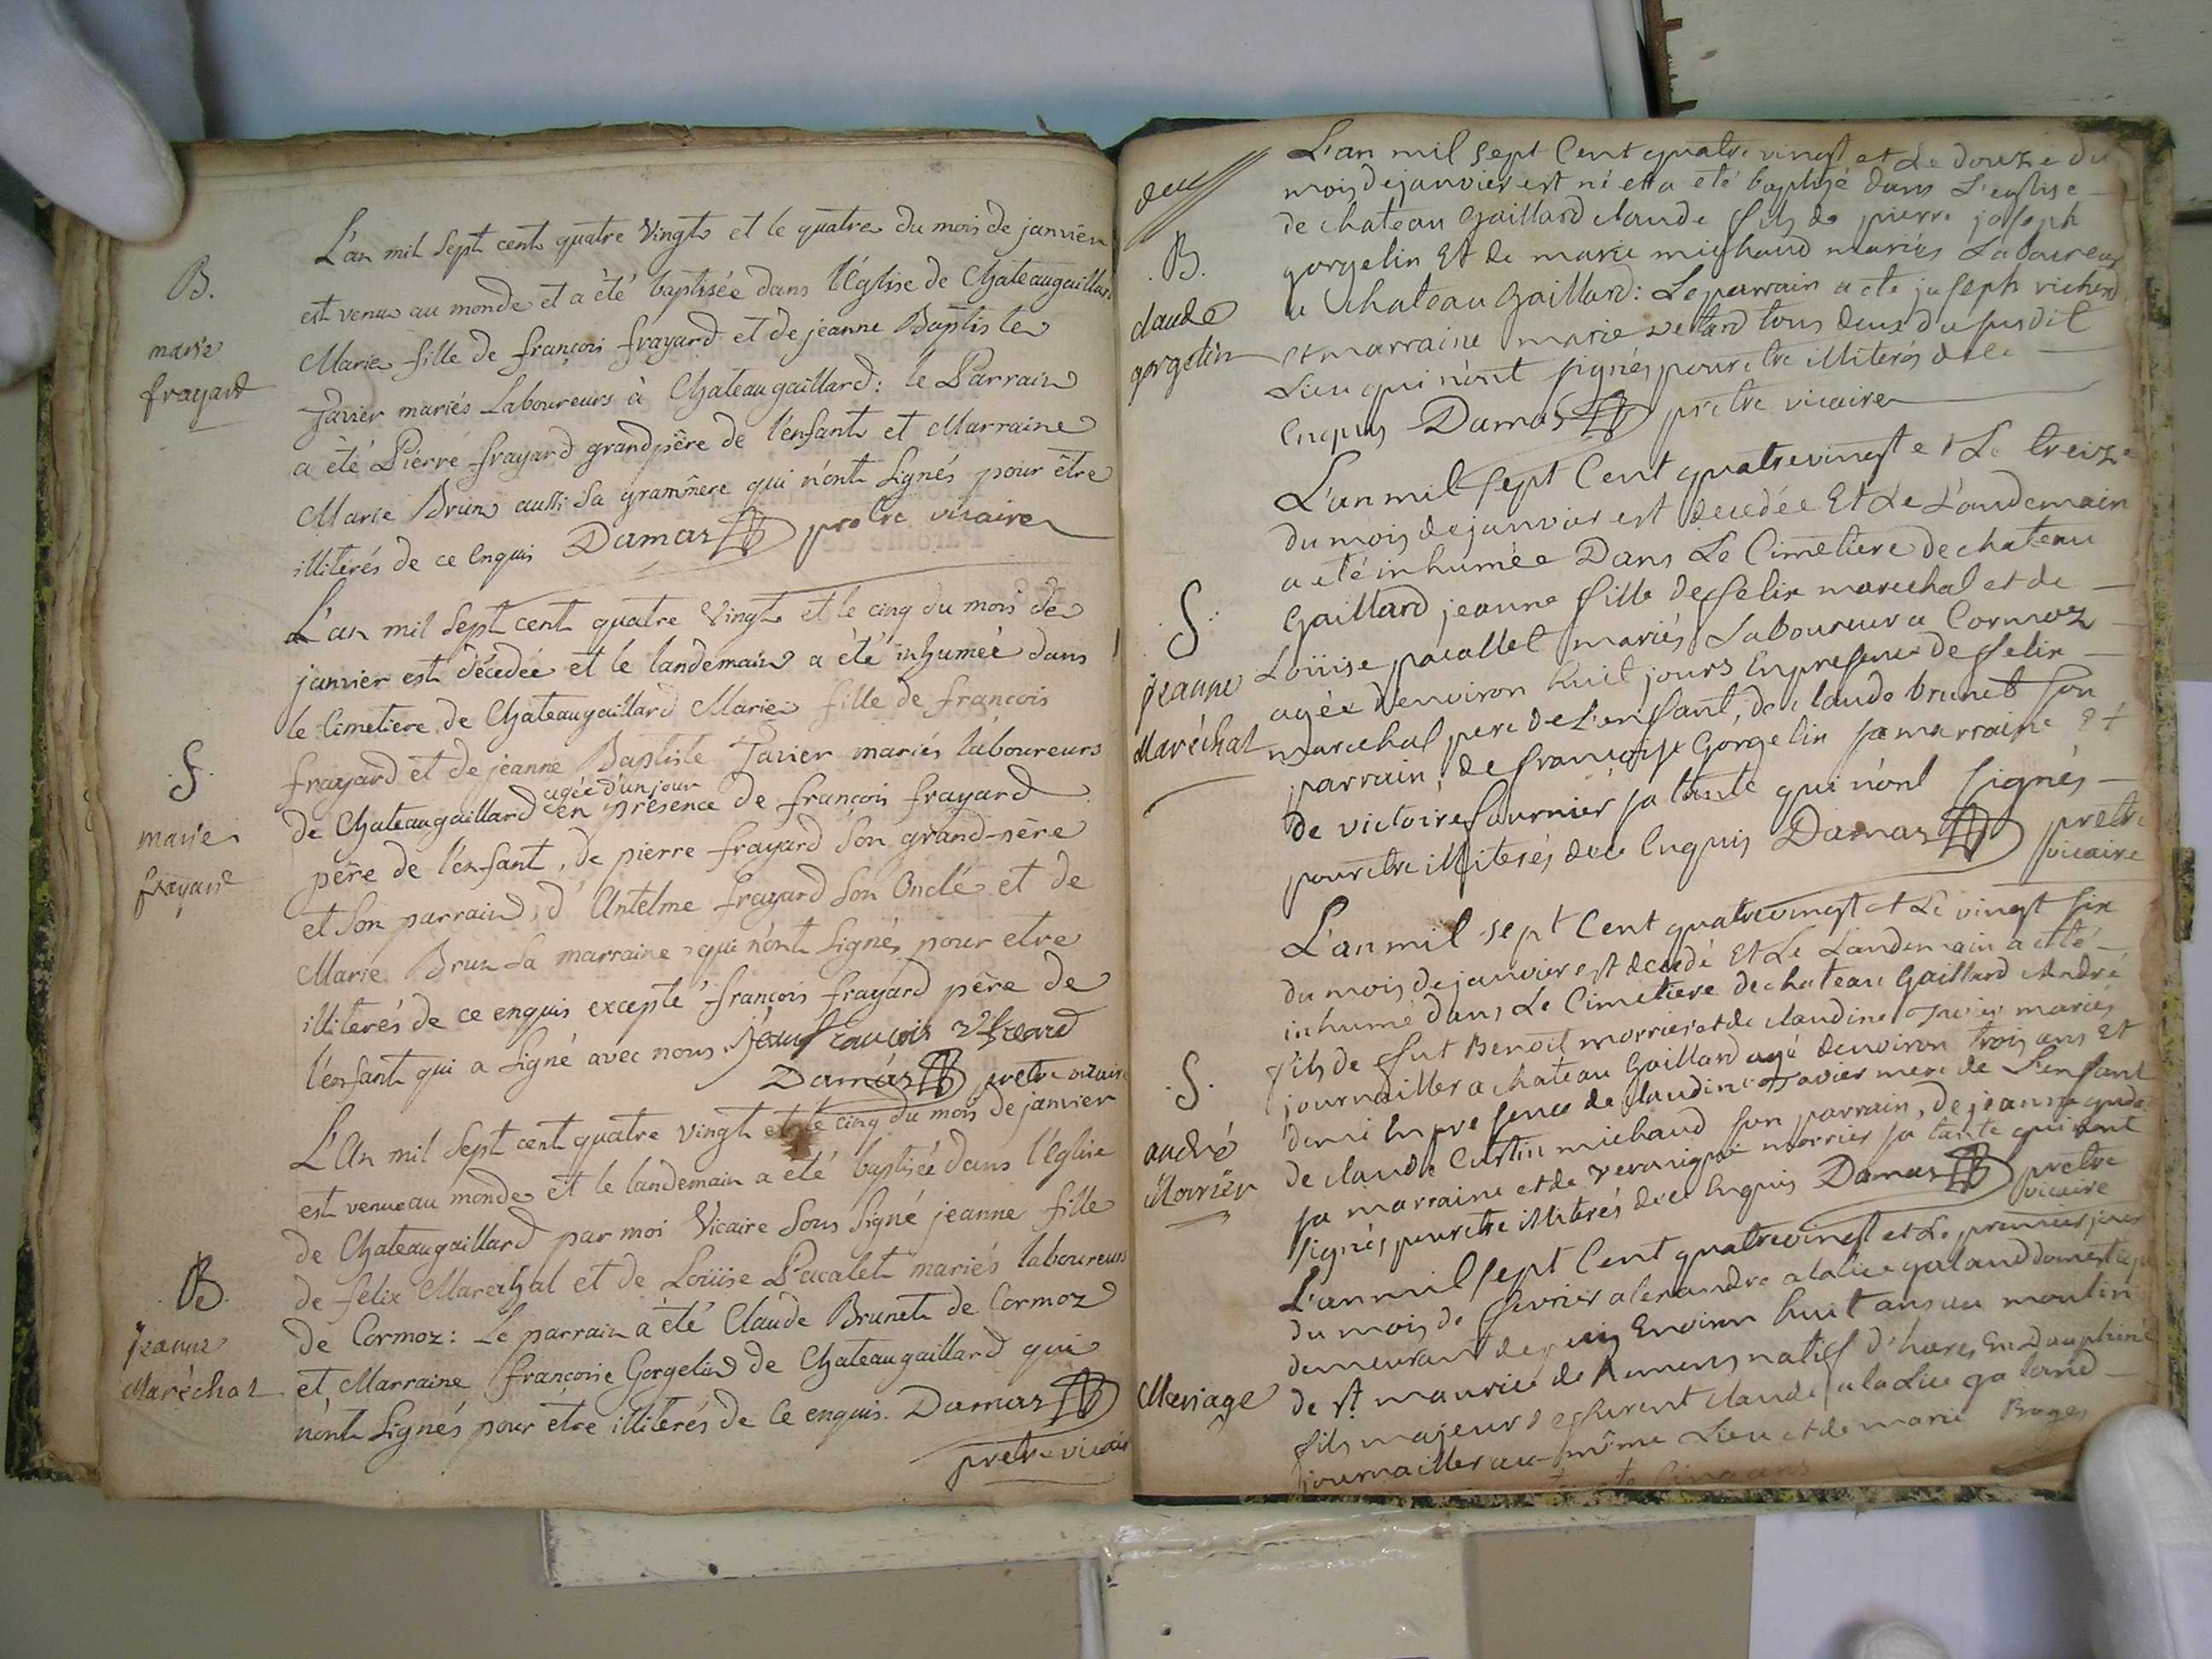 L'an mil Sept cent quatre Vingt et le quatre du mois de janvier
B.
est venue au monde et a été baptisée dans l'Église de Chateaugaillard
marie
Marie fille de françois frayard et de jeanne Baptiste
frayard
Javier mariés Laboureurs à Chateaugaillard: le Parrain
a été Pierre frayard grandpère de l'enfant et Marraine
Marie Brun aussi Sa grammere qui n'ont Signés pour être
illiterés de ce Enquis Damas pretre vicaire
L'an mil Sept cent quatre Vingt et le cinq du mois de
janvier est décedée et le landemain a été inhumée dans
le Cimetiere de Chateaugaillard Marie fille de françois
S.
frayard et de jeanne Baptiste Javier mariés laboureurs
agée d'un jour
de Chateaugaillard en présence de françois frayard
marie
père de l'enfant, de pierre frayard Son grand-père
frayard
et Son parrain, d'Antelme frayard Son Oncle et de
Marie Brun Sa marraine qui n'ont Signés pour etre
illiterés de ce enquis excepté françois frayard père de
l'enfant qui a Signé avec nous. françois
Damas pretre vicaire
L'An mil Sept cent quatre vingt et le cinq du mois de janvier
est venue au monde et le landemain a été baptisée dans l'Eglise
de Chateaugaillard par moi Vicaire Sous Signé jeanne fille
B.
de felix Maréchal et de Loüise Pacalet mariés laboureurs
jeanne
de Cormoz: Le parrain a été Claude Brunet de Cormoz
Maréchal
et Marraine françoise Gorgelin de Chateaugaillard qui
n'ont Signés pour étre illiterés de Ce enquis. Damas
pretre vicaire
deux
L'an mil sept Cent quatre vingt et Le douze du
mois de janvier est né et a eté baptisé dans L'eglise
B.
de chateau Gaillard claude fils de pierre joseph
claude
gorgelin Et de marie michaud mariés Laboureurs
gorgelin
a chateau Gaillard: Le parrain a eté joseph richerd
et marraine marie tous deux du susdit
Lieu qui n'ont signés pour etre illiterés de ce
Enquis Damas pretre vicaire
L'an mil sept Cent quatrevingt et Le treize
du mois de janvier est decedée Et Le Landemain
a eté inhumée Dans Le Cimetiere de chateau
S.
Gaillard jeanne fille de felix marechal et de
jeanne
Loüise pacallet mariés Laboureur a Cormoz
Maréchal
agée denviron huit jours En presence de felix
marechal pere de L'enfant, de claude brunet son
parrain, de françoise Gorgelin sa marraine Et
de victoire fournier sa tante qui n'ont signés
pour etre illiterés de ce Enquis Damas pretre
vicaire
L'an mil sept Cent quatrevingt et Le vingt six
du mois de janvier est decedé Et Le Landemain a eté
inhumé dans Le Cimetiere de chateau Gaillard André
S.
fils de fut Benoit morrier et de claudine Javier mariés
andré
journallier a chateau Gaillard agé denviron trois ans Et
Morrier
demi En presence de claudine Javier mere de L'enfant
de claude Curtin michaud son parrain, de jeanne
sa marraine et de veronique morrier sa tante qui n'ont
signés pour etre illiterés de ce Enquis Damas pretre
vicaire
L'an mil sept Cent quatrevingt et Le premier jour
du mois de fevrier alexandre alalice galand domestique
demeurant depuis Environ huit ans au moulin
Mariage
de st. maurice de Remens natif d'hieres En Dauphiné
fils majeur de furent claude alaLice galand
journallier au même Lieu et de marie Roges